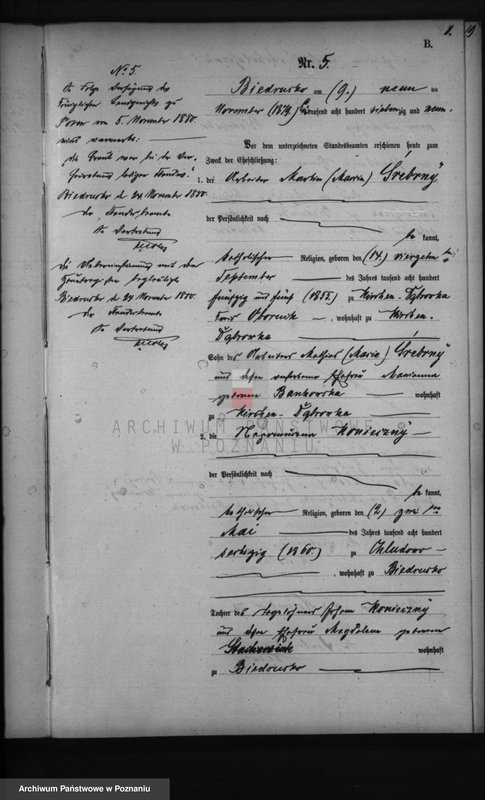 11. 19
B.
Nr. 5.
Biedrusko am (9.) neun ten
November (1879) tausend acht hundert siebenzig und neun.
Vor dem unterzeichneten Standesbeamten erschienen heute zum
Zweck der Eheschließung:
1. der Arbeiter Martin (Marcin) Srebrny
der Persönlichkeit nach
be kannt,
katholischer Religion, geboren den (14.) vierzehn ten
September des Jahres tausend acht hundert
fünfzig und fünf (1855) zu Kirchen-Dąbrowka
Kreis Obornik, wohnhaft zu Kirchen-
Dąbrowka
Sohn des Arbeiters Mathias (Maciej) Srebrny
und dessen verstorbener Ehefrau Marianna
geborene Bankowska wohnhaft
zu Kirchen-Dąbrowka
2. die Nepomucena Konieczny
der Persönlichkeit nach
be kannt,
katholischer Religion, geboren den (2.) zwei ten
Mai des Jahres tausend acht hundert
sechszig (1860) zu Chludowo
, wohnhaft zu Biedrusko
Tochter des Tagelöhners Konieczny
und dessen Ehefrau Magdalena geborene
wohnhaft
zu Biedrusko
No 5.
In Folge Verfügung des
Königlichen Landgerichts zu
Posen vom 5. November 1880
wird vermerkt:
Biedrusko d. 24 November 1880.
Der Standesbeamte
In Vertretung
Die Uebereinstimmung mit dem
Biedrusko d. 24 November 1880.
Der Standesbeamte
In Vertretung
ARCHIWUM PAŃSTWOWE
W POZNANIU
Archiwum Państwowe w Poznaniu